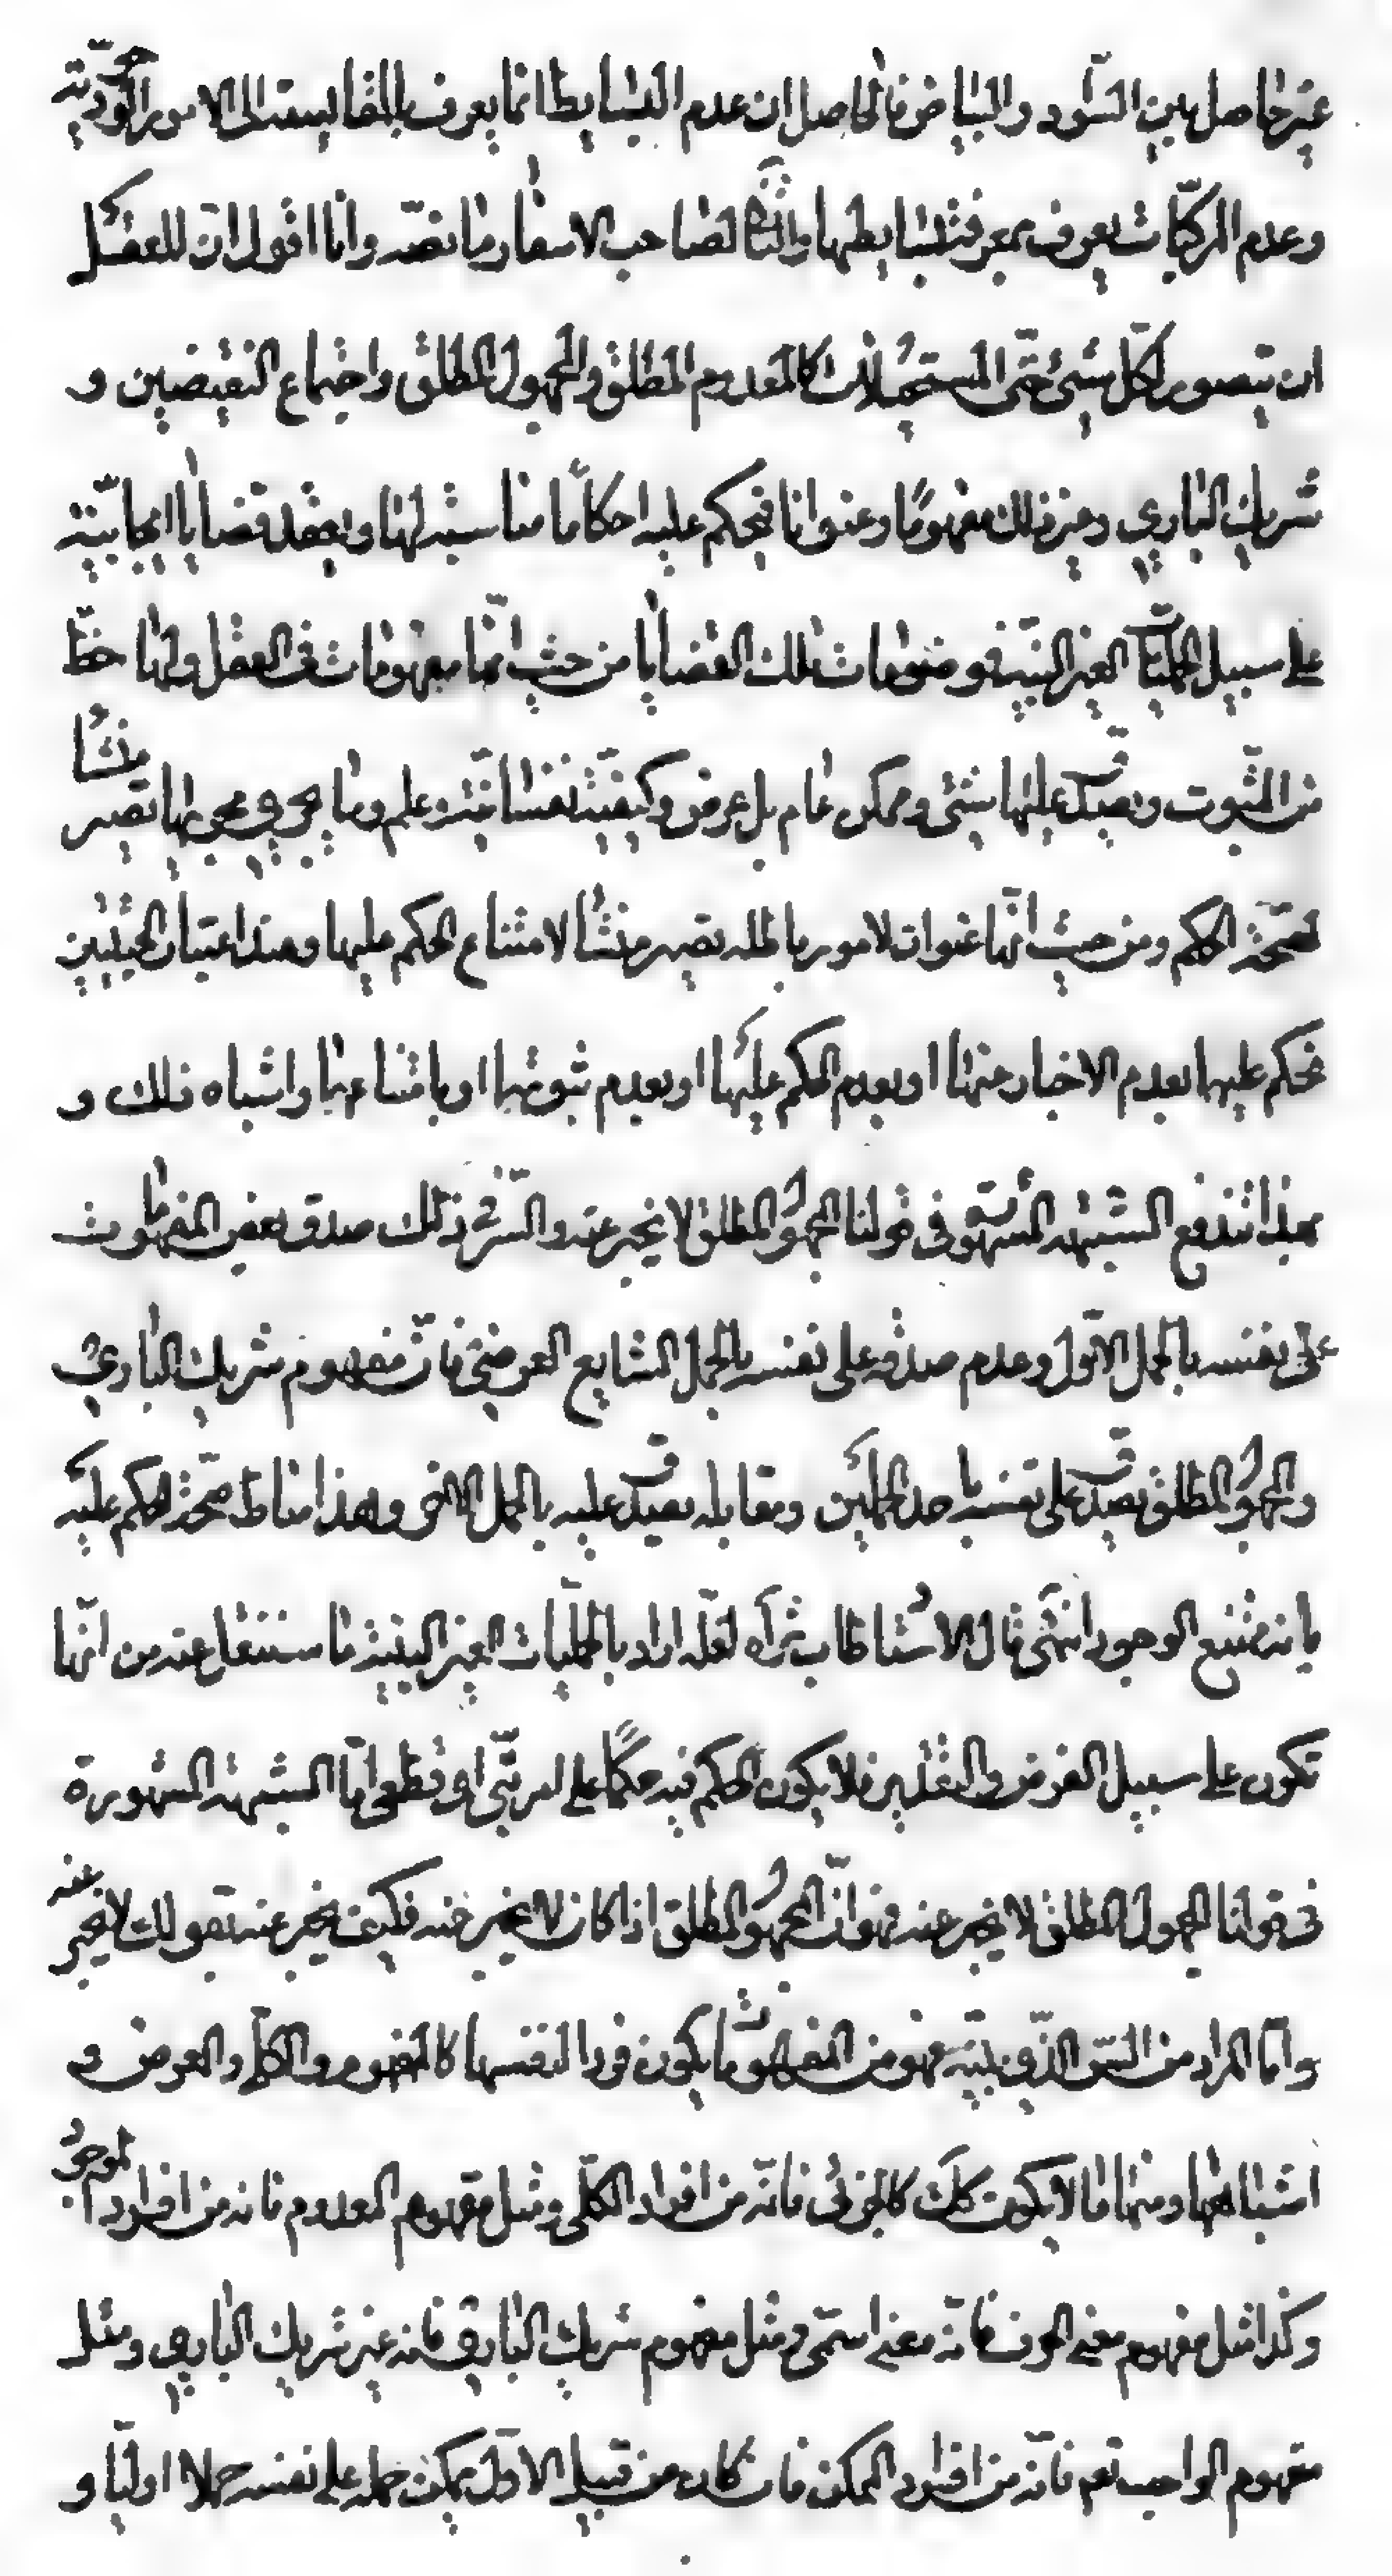 غير حاصل بين السواد والبياض فالحاصل ان عدم البسايط انما يعرف بالمقايسة الى الامور الوجودية
وعدم المركبات يعرف بمعرفة بسايطها والثانى لصاحب الاسفار وما نصّه وانا اقول ان للعقل
ان يتصور لكل شيئ حتى المستحيلات كالمعدوم المطلق والمجهول المطلق واجتماع النقيضين و
شريك البارى وغير ذلك مفهومًا وعنوانا فيحكم عليه احكامًا مناسبة لها ويعقد قضايا ايجابيّة
على سبيل الحمليات الغير البتيّة فموضوعات تلك القضايا من حيث انّها مفهومات فى العقل ولها حظّ
من الثبوت ويصدق عليها شيئى وممكن عام بل عرض وكيفيّة نفسانيّة وعلم وما يجرى مجريها تصير منشأ
لصحّة الحكم ومن حيث انّها عنوان لامور باطله تصير منشأ لامتناع الحكم عليها وعند اعتبار الحيثيتين
نحكم عليها بعدم الاخبار عنها او بعدم الحكم عليها او بعدم ثبوتها او بامتناعها واشباه ذلك و
بهذا تندفع الشبهه المشهورة فى قولنا المجهول المطلق لا يخبر عنه والسّر فى ذلك صدق بعض المفهومات
على نفسه بالحمل الاوّل وعدم صدقه على نفسه بالحمل الشايع العرضى فانّ مفهوم شريك البارى
والمجهول المطلق يصدق على نفسه باحد الحملين ومقابله يصدق عليه بالحمل الاخر وهذا مناط صحّة الحكم عليه
بانه ممتنع الوجود انتهى قال الاستاد طاب ثراه لعلّه اراد بالحمليات الغير البتية ما سننقل عنه من انّها
تكون على سبيل الفرض والتقدير فلا يكون الحكم فيه حكمًا على امر بتّى او قطعى امّا الشبهه المشهورة
فى قولنا المجهول المطلق لا يخبر عنه فهو انّ المجهول المطلق اذا كان لا يخبر عنه فكيف يخبر عنه بقولك لا يخبر عنه
وامّا المراد من السّر الذى بيّنه فهو من المفهومات ما يكون فردا لنفسها كالمفهوم والكلّى والعرض و
اشباهها ومنها ما لا يكون كك كالجزئى فانّه من افراد الكلّى ومثل مفهوم المعدوم فانه من افراد الموجود
وكذا مثل مفهوم معنى الحرف فانّه معنى اسمّى ومثل مفهوم شريك البارى فانه غير شريك البارى ومثل
مفهوم الواجب تعم فانّه من افراد الممكن فان كان من قبيل الاوّل يمكن حمله على نفسه حملا اوليّا و